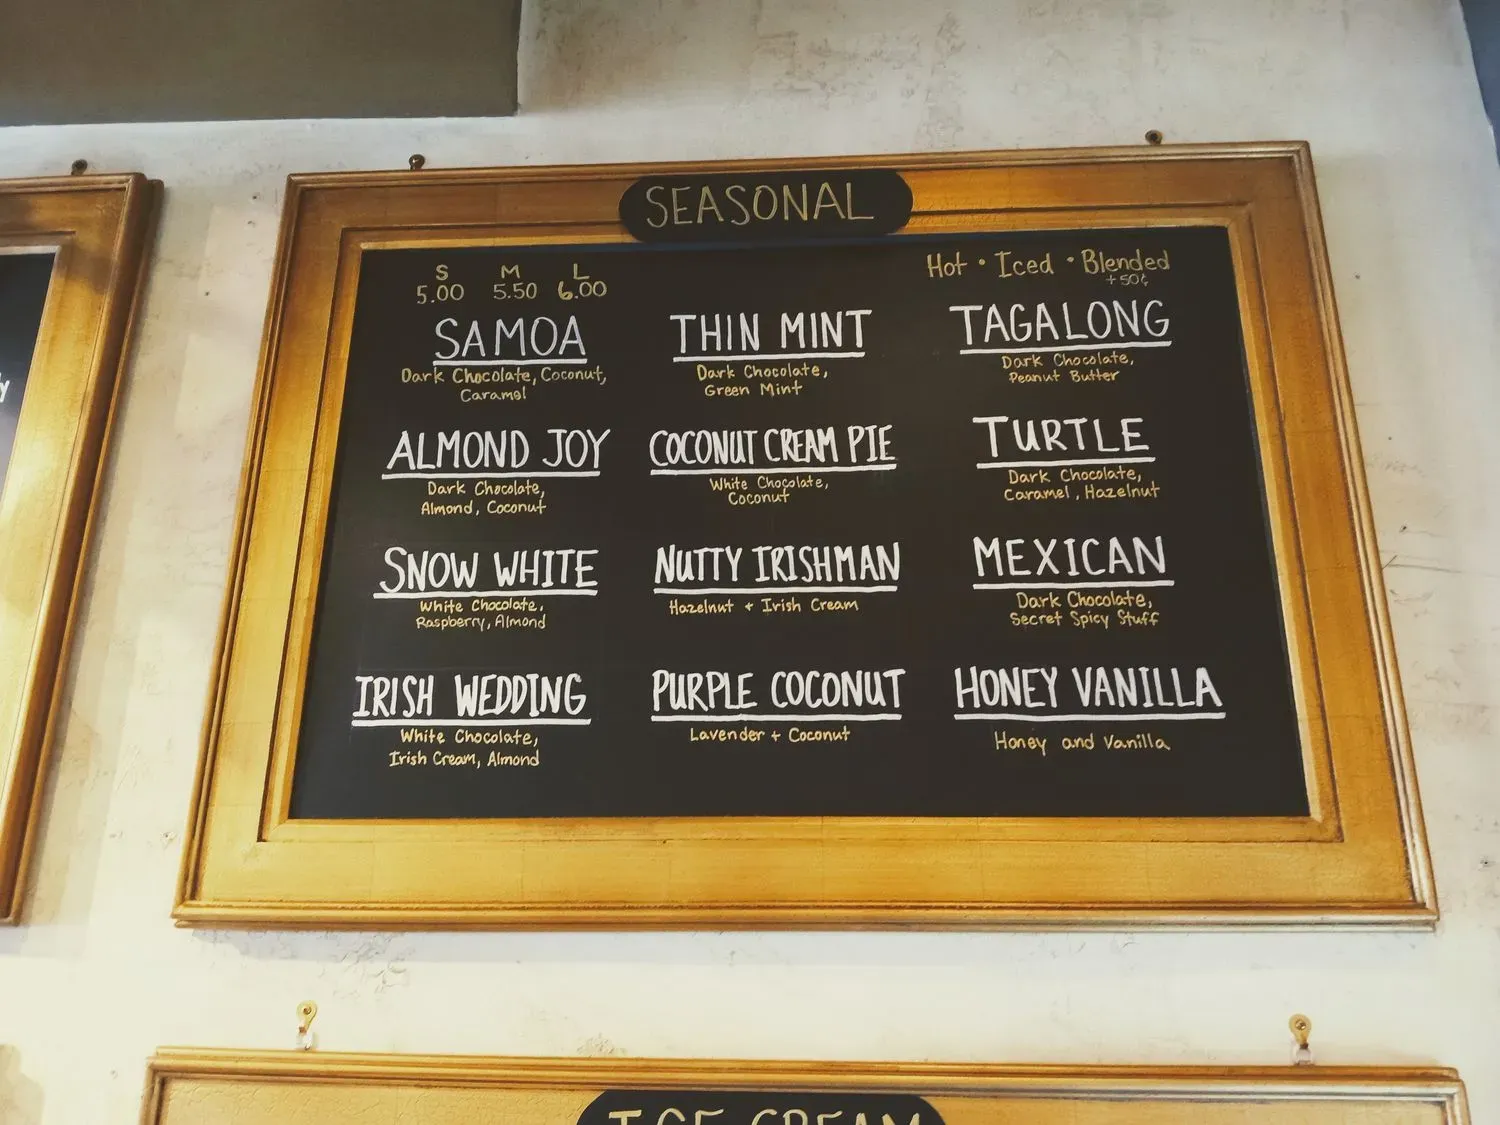 SEASONAL
S M L
5.00 5.50 6.00
Hot • Iced • Blended
+50¢
SAMOA
Dark Chocolate, Coconut,
Caramel
THIN MINT
Dark Chocolate,
Green Mint
TAGALONG
Dark Chocolate,
Peanut Butter
ALMOND JOY
Dark Chocolate,
Almond, Coconut
COCONUT CREAM PIE
White Chocolate,
Coconut
TURTLE
Dark Chocolate,
Caramel, Hazelnut
SNOW WHITE
White Chocolate,
Raspberry, Almond
NUTTY IRISHMAN
Hazelnut + Irish Cream
MEXICAN
Dark Chocolate,
Secret Spicy Stuff
IRISH WEDDING
White Chocolate,
Irish Cream, Almond
PURPLE COCONUT
Lavender + Coconut
HONEY VANILLA
Honey and Vanilla
ICE CREAM